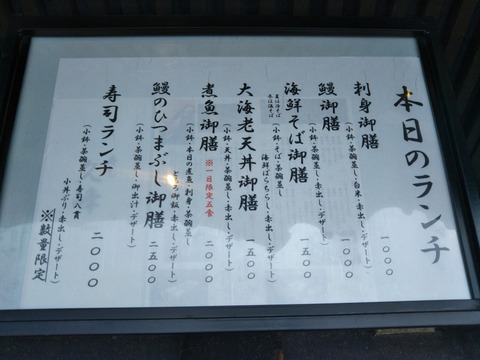 本日のランチ
刺身御膳
(小鉢・茶碗蒸し・白米・赤出し・デザート)
一〇〇〇
鰻御膳
(小鉢・鰻・茶碗蒸し・赤出し・デザート)
海鮮そば御膳
(小鉢・そば・茶碗蒸し
海鮮ばらちらし・デザート)
一五〇〇
大海老天丼御膳
(小鉢・天丼・茶碗蒸し・赤出し・デザート)
一五〇〇
煮魚御膳
※一日限定五食
(小鉢・本日の煮魚・刺身・茶碗蒸し
とろろ御飯・赤出し・デザート)
二〇〇〇
鰻のひつまぶし御膳
(小鉢・茶碗蒸し・御出汁・デザート)
二五〇〇
寿司ランチ
(小鉢・茶碗蒸し・寿司八貫
小丼ぶり・赤出し・デザート)
二〇〇〇
※数量限定